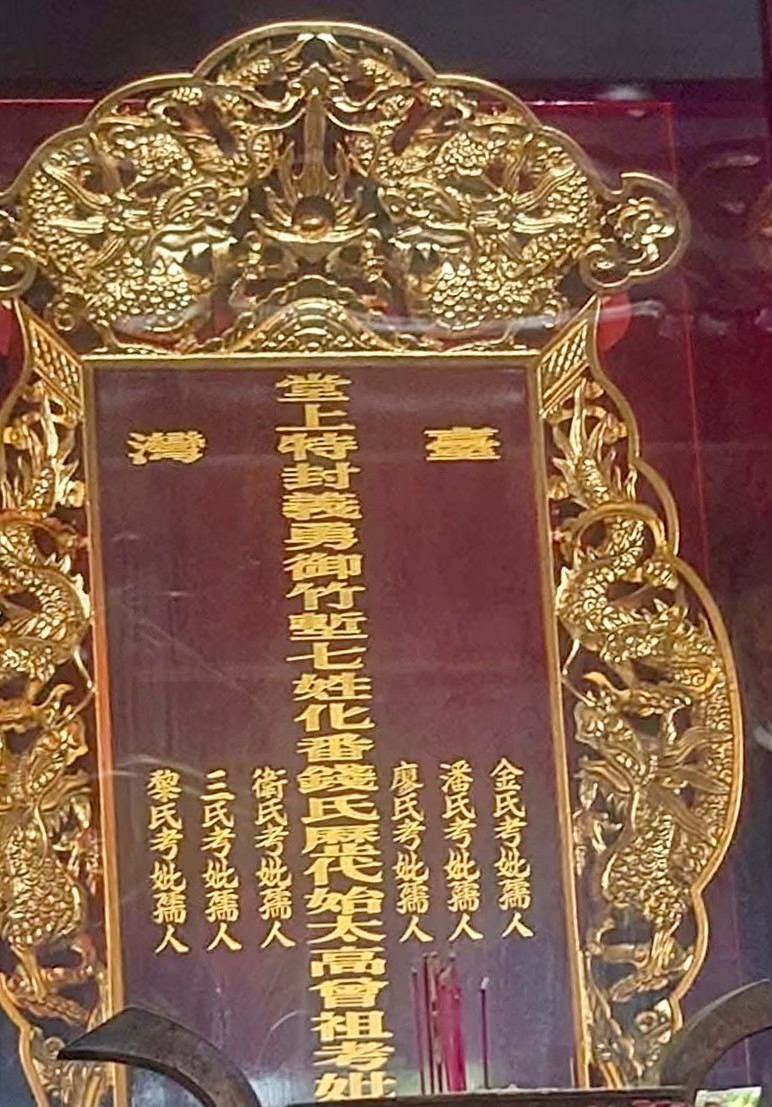 臺灣
金氏考妣孺人
潘氏考妣孺人
廖氏考妣孺人
堂上特封義勇御竹塹七姓化番錢氏歷代始太高曾祖考妣
衛氏考妣孺人
三氏考妣孺人
黎氏考妣孺人